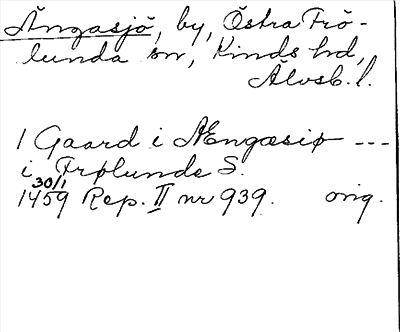 Ängasjö, by, Östra Frö-
lunda sn, Kinds hd,
Älvsb. l.
1 Gaard i Ængæsiø ---
i Frølunde S.
30/1
1459 Rep. II nr 939. orig.